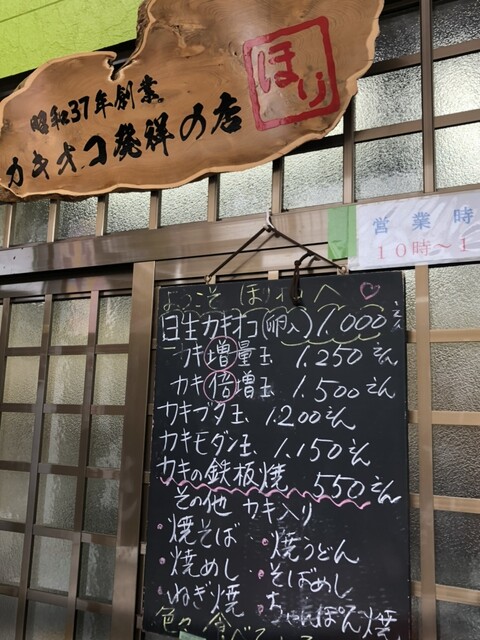 昭和37年創業
カキオコ発祥の店
ほり
営業時
10時～1
ようこそ ほりへ♡
日生カキオコ(卵入) 1.000えん
カキ増量玉 1.250えん
カキ倍増玉 1.500えん
カキブタ玉 1.200えん
カキモダン玉 1.150えん
カキの鉄板焼 550えん
その他 カキ入り
・焼そば ・焼うどん
・焼めし ・そばめし
・ねぎ焼 ・ちゃんぽん焼